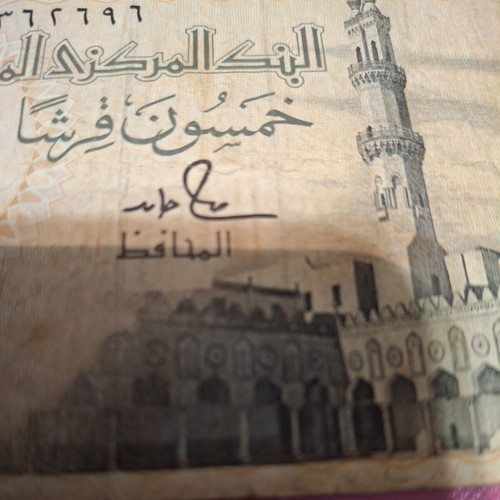 ٣٦٢٦٩٦
البنك المركزى الم
خمسون قرشًا
المحافظ